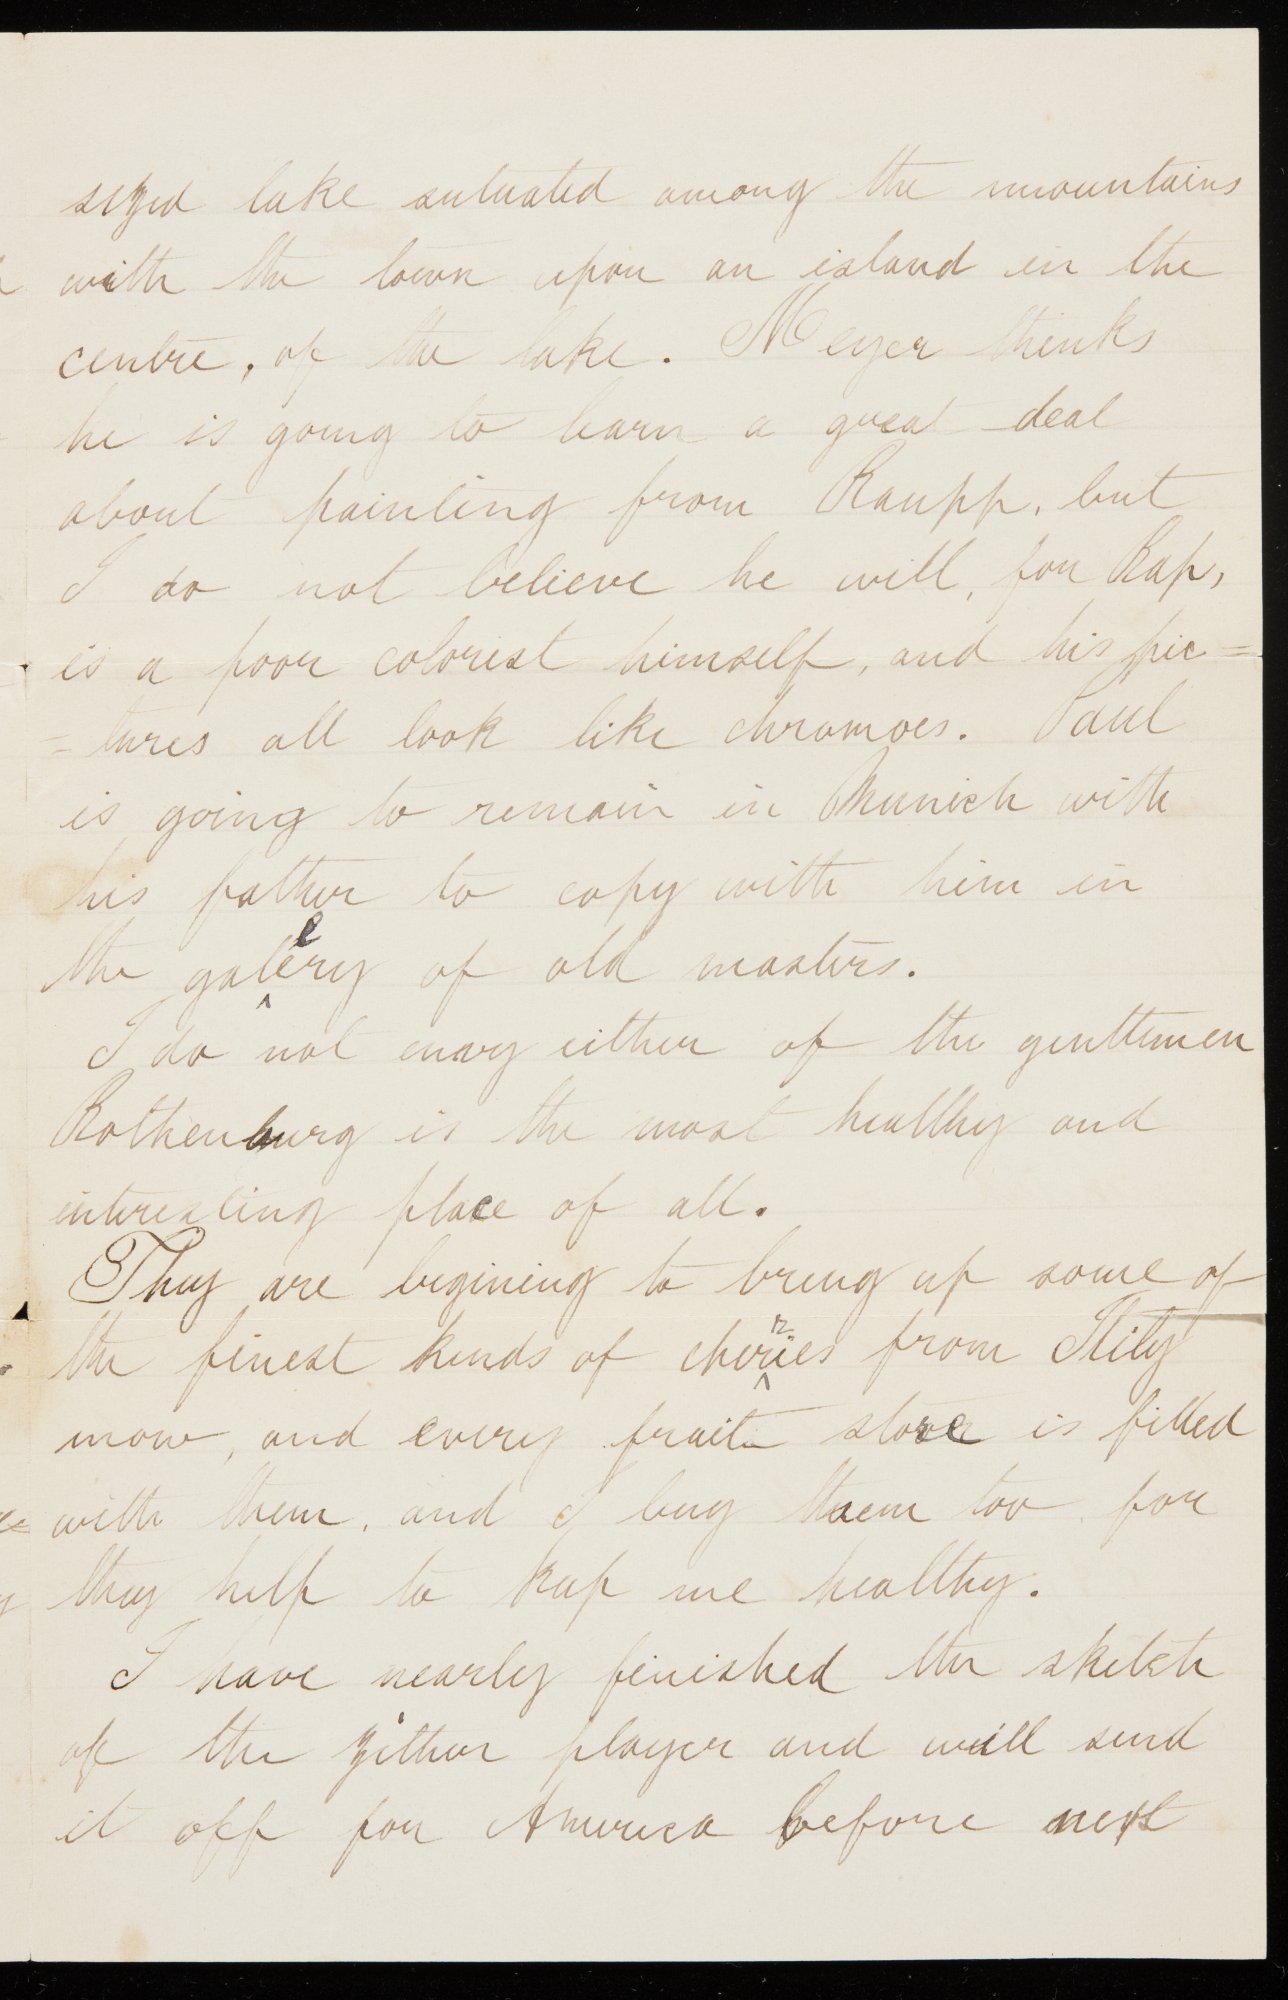 sized lake situated among the mountains
with the town upon an island in the
centre, of the lake. Meyer thinks
he is going to learn a great deal
about painting from Raupp, but
I do not believe he will, for Rap,
is a poor colorist himself, and his pic=
=tures all look like chromoes. Paul
is going to remain in Munich with
his father to copy with him in
the gallery of old masters.
I do not envy either of the gentlemen
Rothenburg is the most healthy and
interesting place of all.
They are begining to bring up some of
the finest kinds of cherries from Itily
now, and every fruit store is filled
with them, and I buy them too for
they help to keep me healthy.
I have nearly finished the sketch
of the zither player and will send
it off for America before next